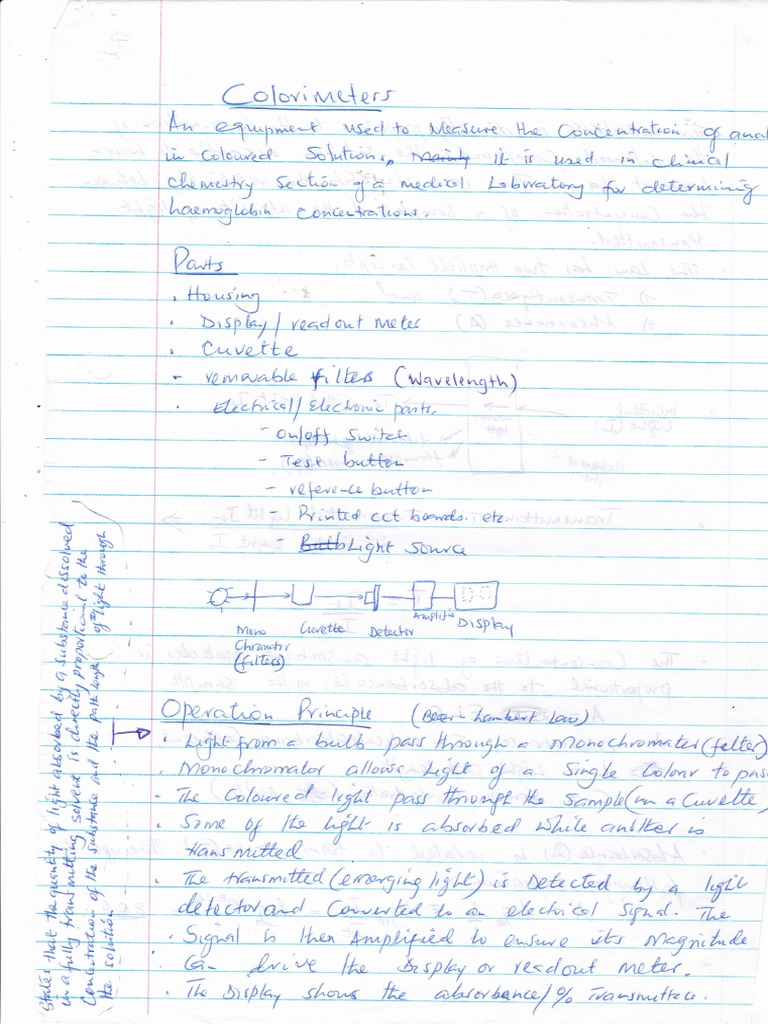 Colorimeters
An equipment used to Measure the Concentration of anal
in Coloured Solutions, Mainly it is used in clinical
chemestry Section of a medical Laboratory for determining
haemoglobin concentrations.
Parts
. Housing
. Display / readout meter
. Cuvette
- removable filters (Wavelength)
. Electrical / Electronic parts,
- On/off Switch
- Test button
- reference button
- Printed cct boards. etc
- Bulb Light Source
Mono Chromator (filters)
Cuvette
Detector
Amplifie
Display
Operation Principle (Beer Lambert Law)
. Light from a bulb pass through a Monochromater (felter)
. Monochromator allows Light of a Single Colour to pass
. The Coloured light pass through the Sample (in a Cuvette)
. Some of the light is absorbed while another is
transmitted
. The transmitted (emerging light) is Detected by a light
detector and Converted to an electrical Signal. The
. Signal is then Amplified to ensure its Magnitude
. Can drive the Display or readout meter.
. The Display shows the absorbance / % Transmittace.
States that the quantity of light absorbed by a substance dissolved
in a fully transmitting solvent is directly proportional to the
Concentration of the substance and the path length of the light through
the solution